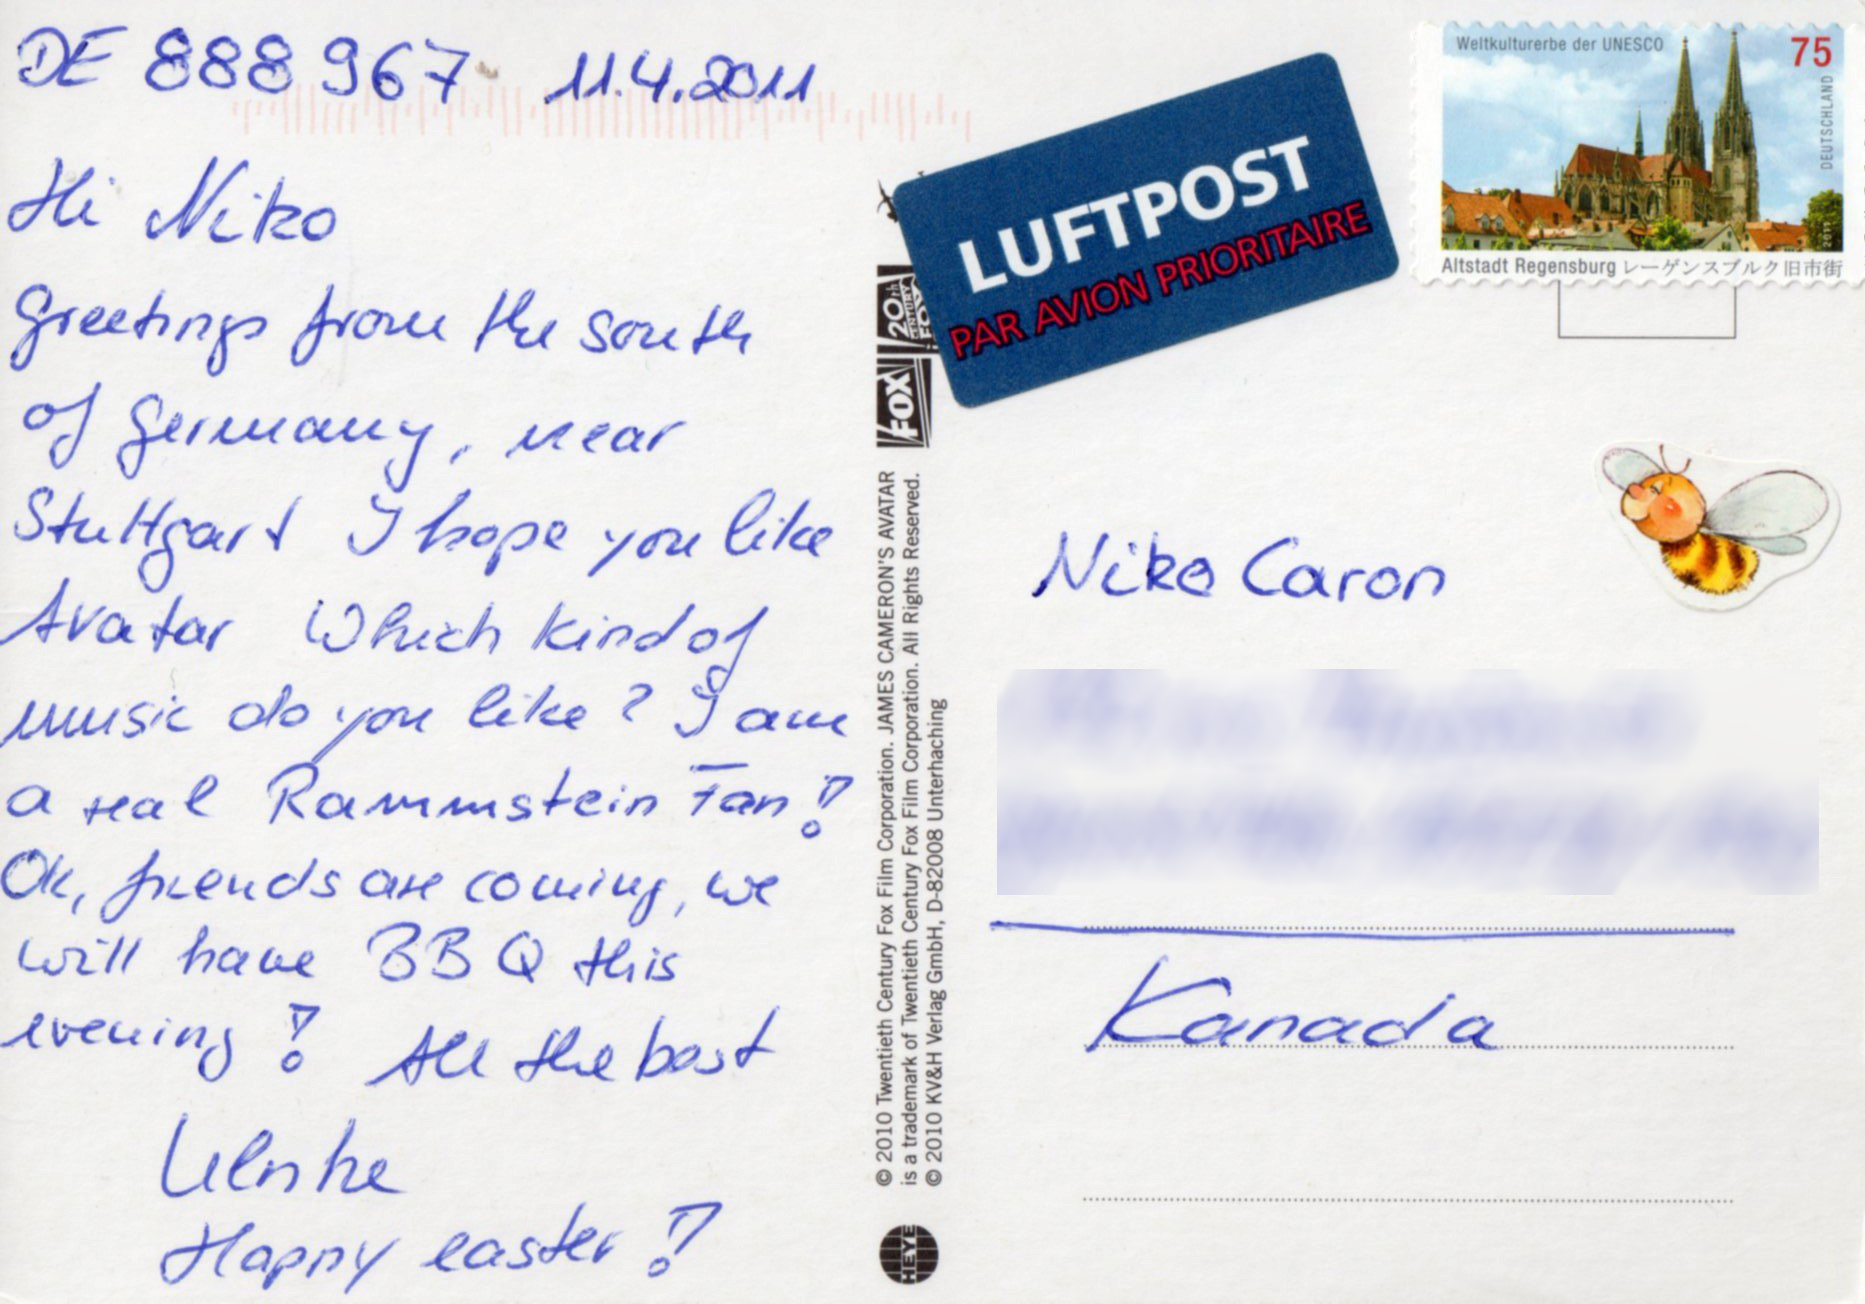 DE 888 967 11.4.2011
Hi Niko
Greetings from the south
of Germany, near
Stuttgart I hope you like
Avatar Which kind of
music do you like? I am
a real Rammstein Fan!
Ok, friends are coming, we
will have BBQ this
evening! All the best
Ulrike
Happy easter!
20th
CENTURY
FOX
FOX
© 2010 Twentieth Century Fox Film Corporation. JAMES CAMERON'S AVATAR
is a trademark of Twentieth Century Fox Film Corporation. All Rights Reserved.
© 2010 KV&H Verlag GmbH, D-82008 Unterhaching
HEYE
LUFTPOST
PAR AVION PRIORITAIRE
Weltkulturerbe der UNESCO
75
DEUTSCHLAND
2011
Altstadt Regensburg レーゲンスブルク旧市街
Niko Caron
Kanada